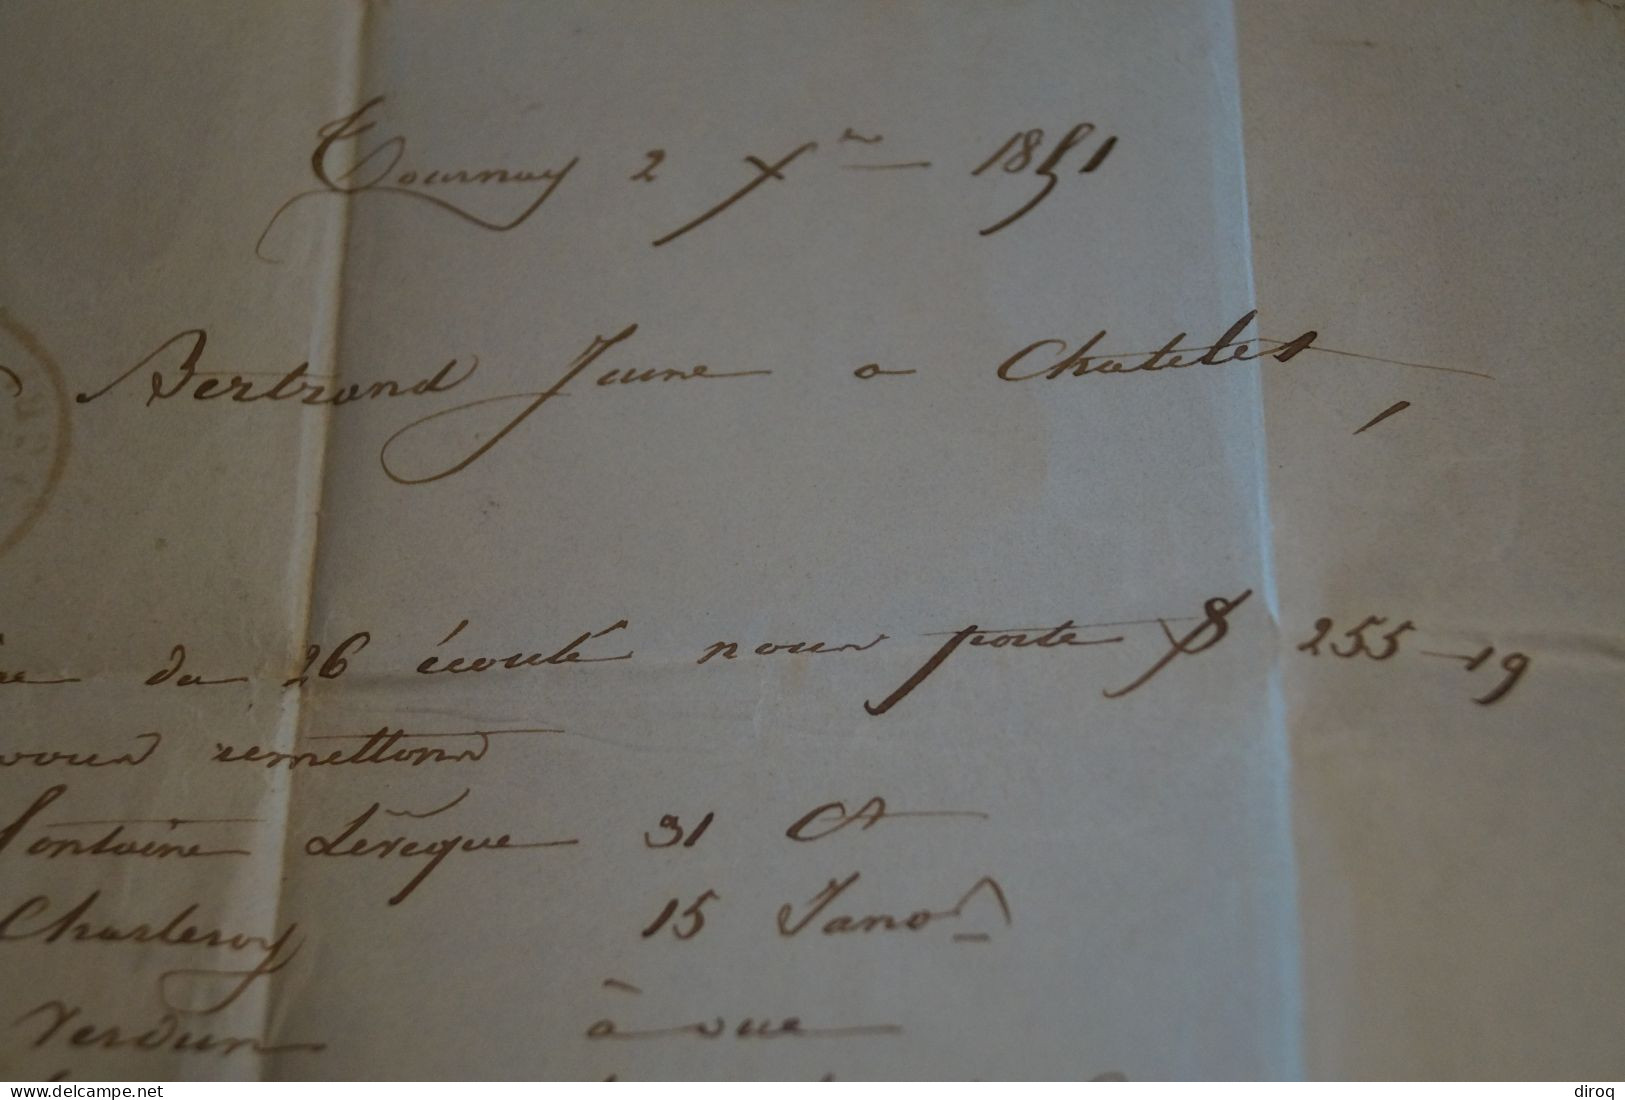 Tournay 2 Xre 1851
Bertrand Jeune a Chatelet
du 26 écoulé nous porte 255-19
vous remettons
fontaine Lévêque 31 Ct
Charleroy 15 Janv
Verdun à vue
www.delcampe.net
diroq